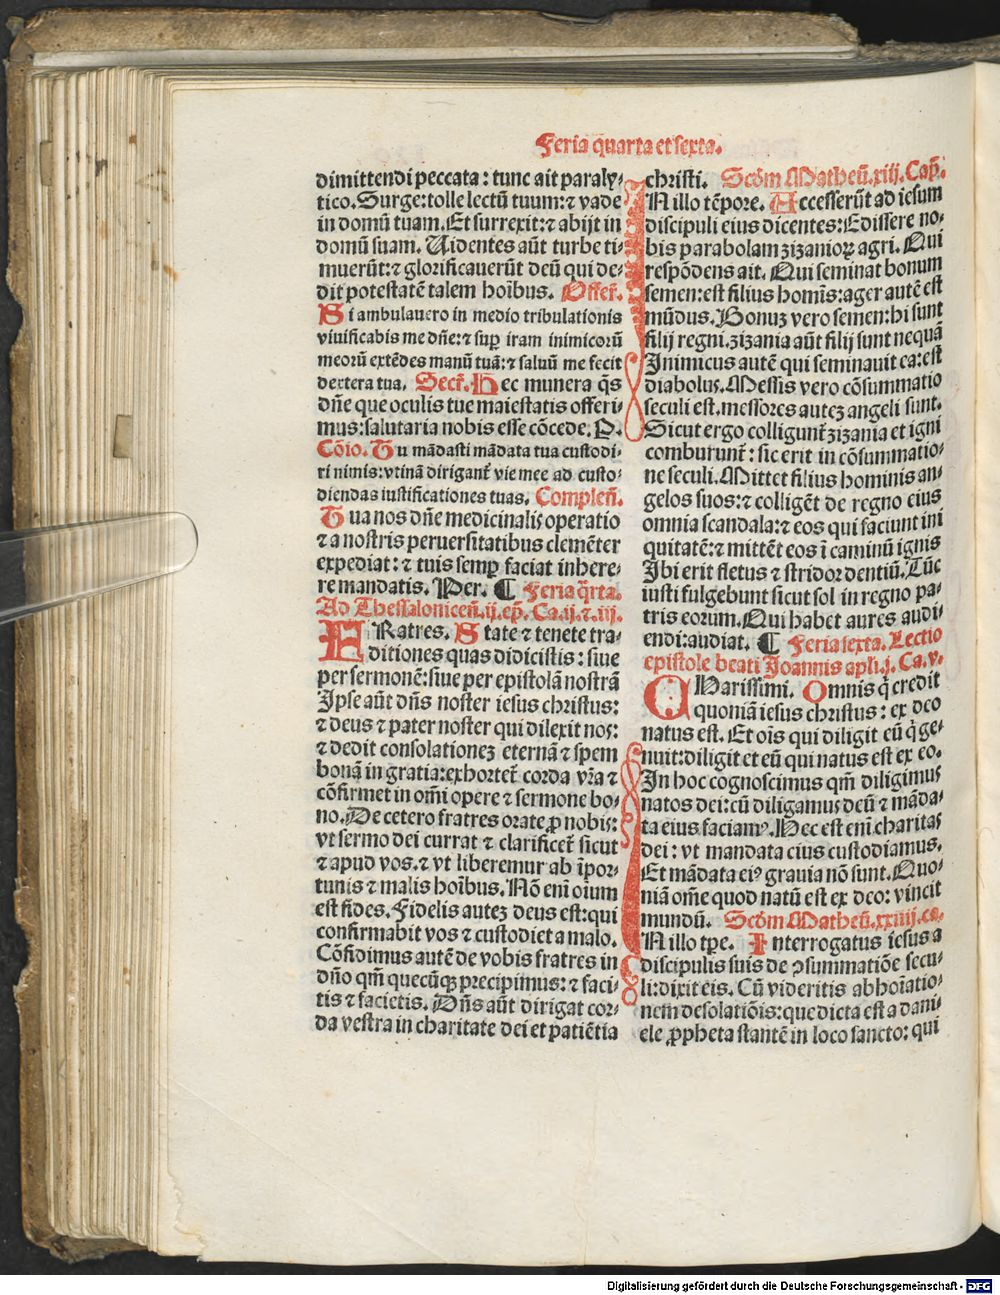 Feria q̄uarta et sexta.
dimittendi peccata: tunc ait paraly⸗
tico. Surge: tolle lectū tuum: ⁊ vade
in domū tuam. Et surrexit: ⁊ abijt in
domū suam. Uidentes aūt turbe ti⸗
muerūt: ⁊ glorificauerūt deū qui de⸗
dit potestatē talem hoībus. Offer̄.
Si ambulauero in medio tribulationis
viuificabis me dn̄e: ⁊ sup̱ iram inimicorū
meorū extēdes manū tuā: ⁊ saluū me fecit
dextera tua. Secr̄. Hec munera q̄s
dn̄e que oculis tue maiestatis offeri⸗
mus: salutaria nobis esse cōcede. P.
Cōio. Tu mādasti mādata tua custodi⸗
ri nimis: vtinā dirigant̄ vie mee ad custo⸗
diendas iustificationes tuas. Complen̄.
Tua nos dn̄e medicinalis operatio
⁊ a nostris peruersitatibus clemēter
expediat: ⁊ tuis semp̱ faciat inhere⸗
re mandatis. Per. ¶ Feria q̄rta.
Ad Thessalonicen̄. ij. ep̄. Ca. ij. ⁊. iij.
FRatres. State ⁊ tenete tra⸗
ditiones quas didicistis: siue
per sermonē: siue per epistolā nostrā
Ipse aūt dn̄s noster iesus christus:
⁊ deus ⁊ pater noster qui dilexit nos:
⁊ dedit consolationez eternā ⁊ spem
bonā in gratia: exhortet̄ corda vr̄a ⁊
cōfirmet in om̄i opere ⁊ sermone bo⸗
no. De cetero fratres orate ꝓ nobis:
vt sermo dei currat ⁊ clarificet̄ sicut
⁊ apud vos. ⁊ vt liberemur ab īpor⸗
tunis ⁊ malis hoībus. Nō enī oīum
est fides. Fidelis autez deus est: qui
confirmabit vos ⁊ custodiet a malo.
Cōfidimus autē de vobis fratres in
dn̄o qm̄ quecūqꝫ precipimus: ⁊ faci⸗
tis ⁊ facietis. Dn̄s aūt dirigat cor⸗
da vestra in charitate dei et patiētia
christi. Scd̄m Matheū. xiij. Cap̄.
IN illo tēpore. Accesserūt ad iesum
discipuli eius dicentes: Edissere no⸗
bis parabolam zizanioꝝ agri. Qui
respōdens ait. Qui seminat bonum
semen: est filius homīs: ager autē est
mūdus. Bonuz vero semen: hi sunt
filij regni. zizania aūt filij sunt nequā
Inimicus autē qui seminauit ea: est
diabolus. Messis vero cōsummatio
seculi est. messores autez angeli sunt.
Sicut ergo colligunt̄ zizania et igni
comburunt̄: sic erit in cōsummatio⸗
ne seculi. Mittet filius hominis an⸗
gelos suos: ⁊ colligēt de regno eius
omnia scandala: ⁊ eos qui faciunt ini
quitatē: ⁊ mittēt eos ī caminū ignis
Ibi erit fletus ⁊ stridor dentiū. Tūc
iusti fulgebunt sicut sol in regno pa⸗
tris eorum. Qui habet aures audi
endi: audiat. ¶ Feria sexta. Lectio
epistole beati Joannis apl̄i. j. Ca. v.
CHarissimi. Omnis q̇ credit
quoniā iesus christus: ex deo
natus est. Et oīs qui diligit eū q̇ ge⸗
nuit: diligit et eū qui natus est ex eo.
In hoc cognoscimus qm̄ diligimus
natos dei: cū diligamus deū ⁊ māda⸗
ta eius faciamꝰ. Hec est enī charitas
dei: vt mandata eius custodiamus.
Et mādata eiꝰ grauia nō sunt. Quo⸗
niā om̄e quod natū est ex deo: vincit
mundū. Scd̄m Matheū. xxiiij. ca.
IN illo tp̄e. Interrogatus iesus a
discipulis suis de ꝯsummatiōe secu⸗
li: dixit eis. Cū videritis abhoīatio⸗
nem desolatiōis: que dicta est a dani⸗
ele ꝓpheta stantē in loco sancto: qui
Digitalisierung gefördert durch die Deutsche Forschungsgemeinschaft - DFG